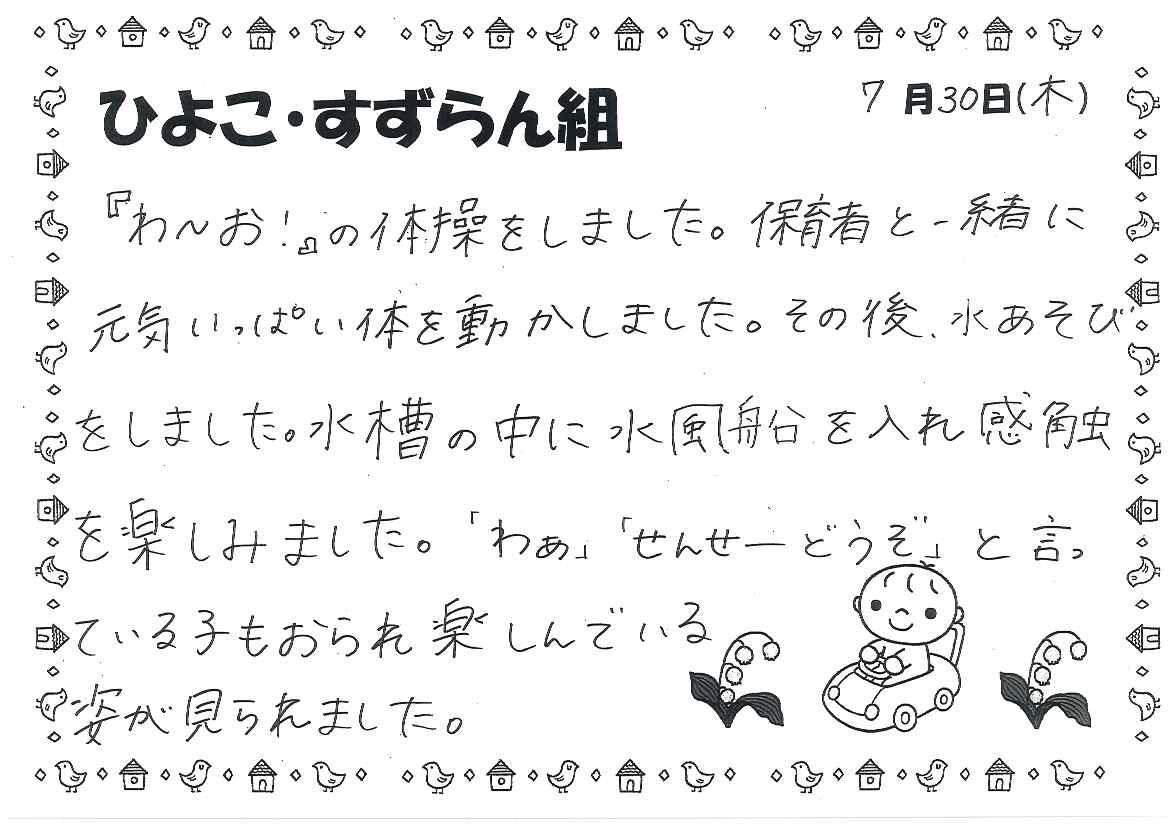 ひよこ・すずらん組
7月30日(木)
『わ～お!』の体操をしました。保育者と一緒に
元気いっぱい体を動かしました。その後、水あそび
をしました。水槽の中に水風船を入れ感触
を楽しみました。「わぁ」「せんせーどうぞ」と言っ
ている子もおられ楽しんでいる
姿が見られました。